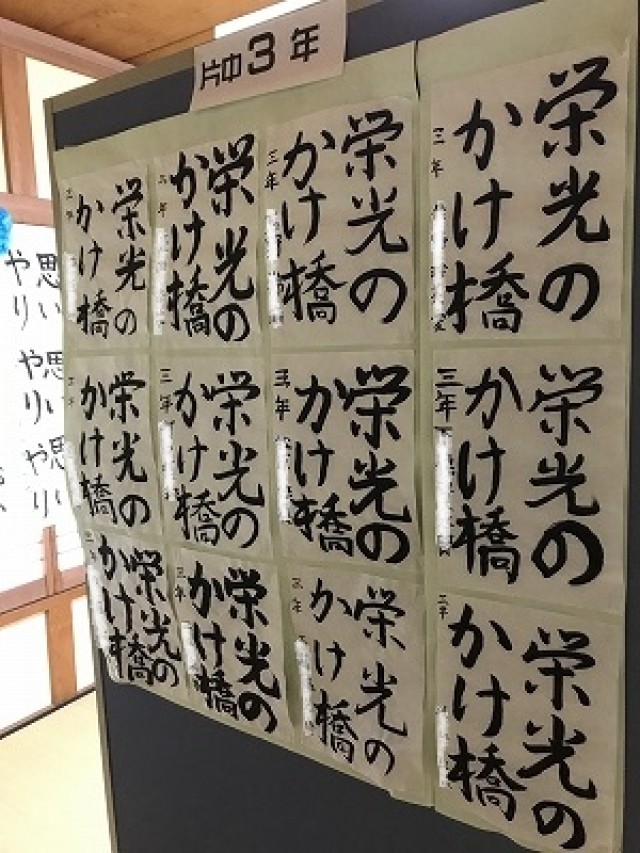 片中3年
栄光の
かけ橋
三年
栄光の
かけ橋
三年
栄光の
かけ橋
三年
栄光の
かけ橋
三年
栄光の
かけ橋
三年
栄光の
かけ橋
三年
栄光の
かけ橋
三年
栄光の
かけ橋
三年
栄光の
かけ橋
三年
栄光の
かけ橋
三年
栄光の
かけ橋
三年
栄光の
かけ橋
思い
やり
思い
やり
思い
やり